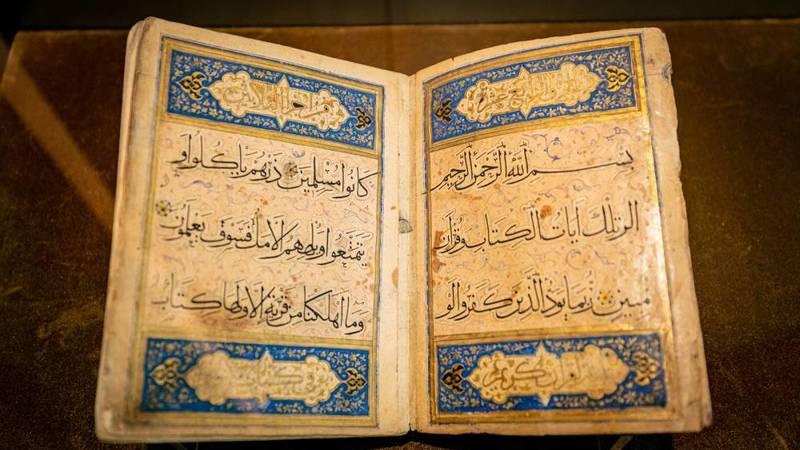 الرابع عشر
بسم الله الرحمن الرحيم
الر تلك ايات الكتاب وقران
مبين ربما يود الذين كفروا لو
لقران كريم
كانوا مسلمين ذرهم ياكلوا و
يتمتعوا ويلههم الامل فسوف يعلمون
وما اهلكنا من قرية الا ولها كتاب
في كتاب